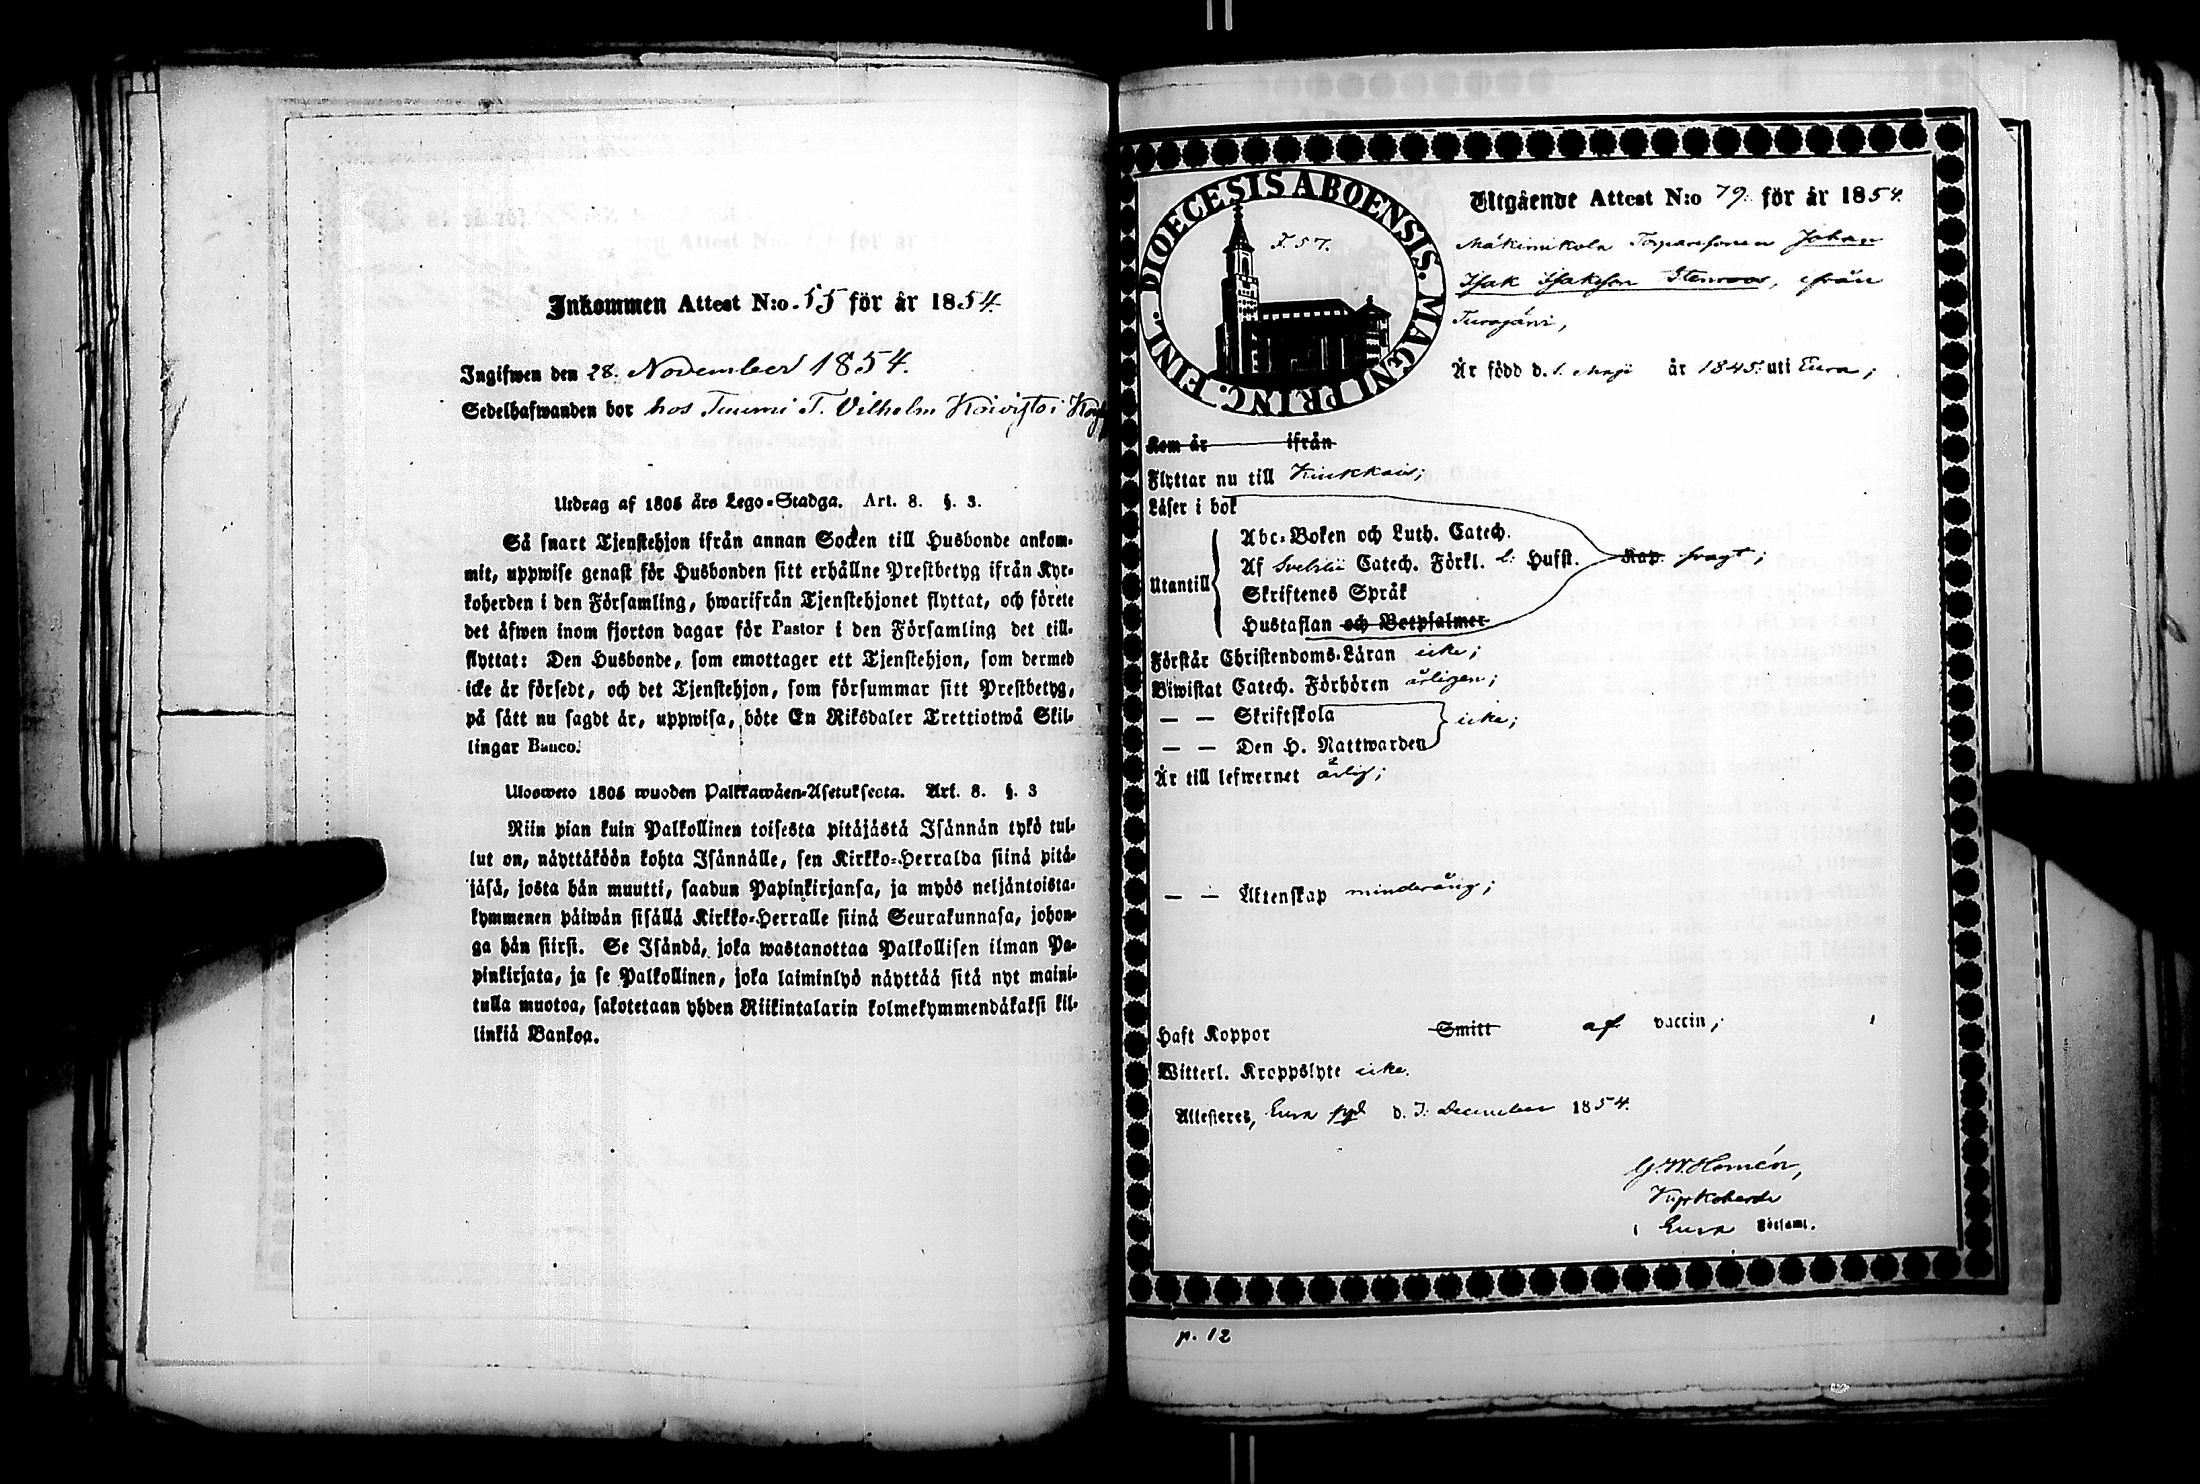 Inkommen Attest N:o 55 för år 1854.
Ingifwen den 28. November 1854.
Sedelhafwanden bor hos Tuumi T. Vilhelm Koivisto i
Utdrag af 1805 års Lego-Stadga. Art. 8. §. 3.
Så snart Tjenstehjon ifrån annan Socken till Husbonde ankom-
mit, uppwise genast för Husbonden sitt erhållne Prestbetyg ifrån Kyr-
koherden i den Församling, hwarifrån Tjenstehjonet flyttat, och förete
det äfwen inom fjorton dagar för Pastor i den Församling det till-
flyttat: Den Husbonde, som emottager ett Tjenstehjon, som dermed
icke är försedt, och det Tjenstehjon, som försummar sitt Prestbetyg,
på sätt nu sagdt är, uppwisa, böte En Riksdaler Trettiotwå Skil-
lingar Banco.
Ulosweto 1805 wuoden Palkkawäen-Asetuksesta. Art. 8. §. 3
Niin pian kuin Palkollinen toisesta pitäjästä Isännän tykö tul-
lut on, näyttäköön kohta Isännälle, sen Kirkko-Herralda siinä pitä-
jäsä, josta hän muutti, saadun Papinkirjansa, ja myös neljäntoista-
kymmenen päiwän sisällä Kirkko-Herralle siinä Seurakunnasa, johon-
ga hän siirsi. Se Isändä, joka wastanottaa Palkollisen ilman Pa-
pinkirjata, ja se Palkollinen, joka laiminlyö näyttää sitä nyt maini-
tulla muotoa, sakotetaan yhden Riikintalarin kolmekymmendäkaksi kil-
linkiä Bankoa.
DIOECESIS ABOENSIS. MAGNI PRINC. FINL.
F. 57.
Utgående Attest N:o 79. för år 1854.
Mäkimikola Torparesonen Johan
Isak Isaksson Stenroos, ifrån
Turajärvi,
Är född d. 1. Maji år 1845. uti Eura;
Kom år ifrån
Flyttar nu till Kiukkais;
Läser i bok
Abc-Boken och Luth. Catech.
Utantill Af Svebilii Catech. Förkl. Husst. Kap. svagt;
Skriftenes Språk
Hustaflan och Botpsalmer
Förstår Christendoms-Läran icke;
Biwistat Catech. Förhören årligen;
— — Skriftskola icke;
— — Den H. Nattwarden
Är till lefwernet ärlig;
— — Äktenskap minderårig;
Haft Koppor Smitt af vaccin;
Witterl. Kroppslyte icke.
Attesteres, Eura d. 7. December 1854.
G. W. Homén,
Kyrkoherde
i Eura Församl.
p. 12